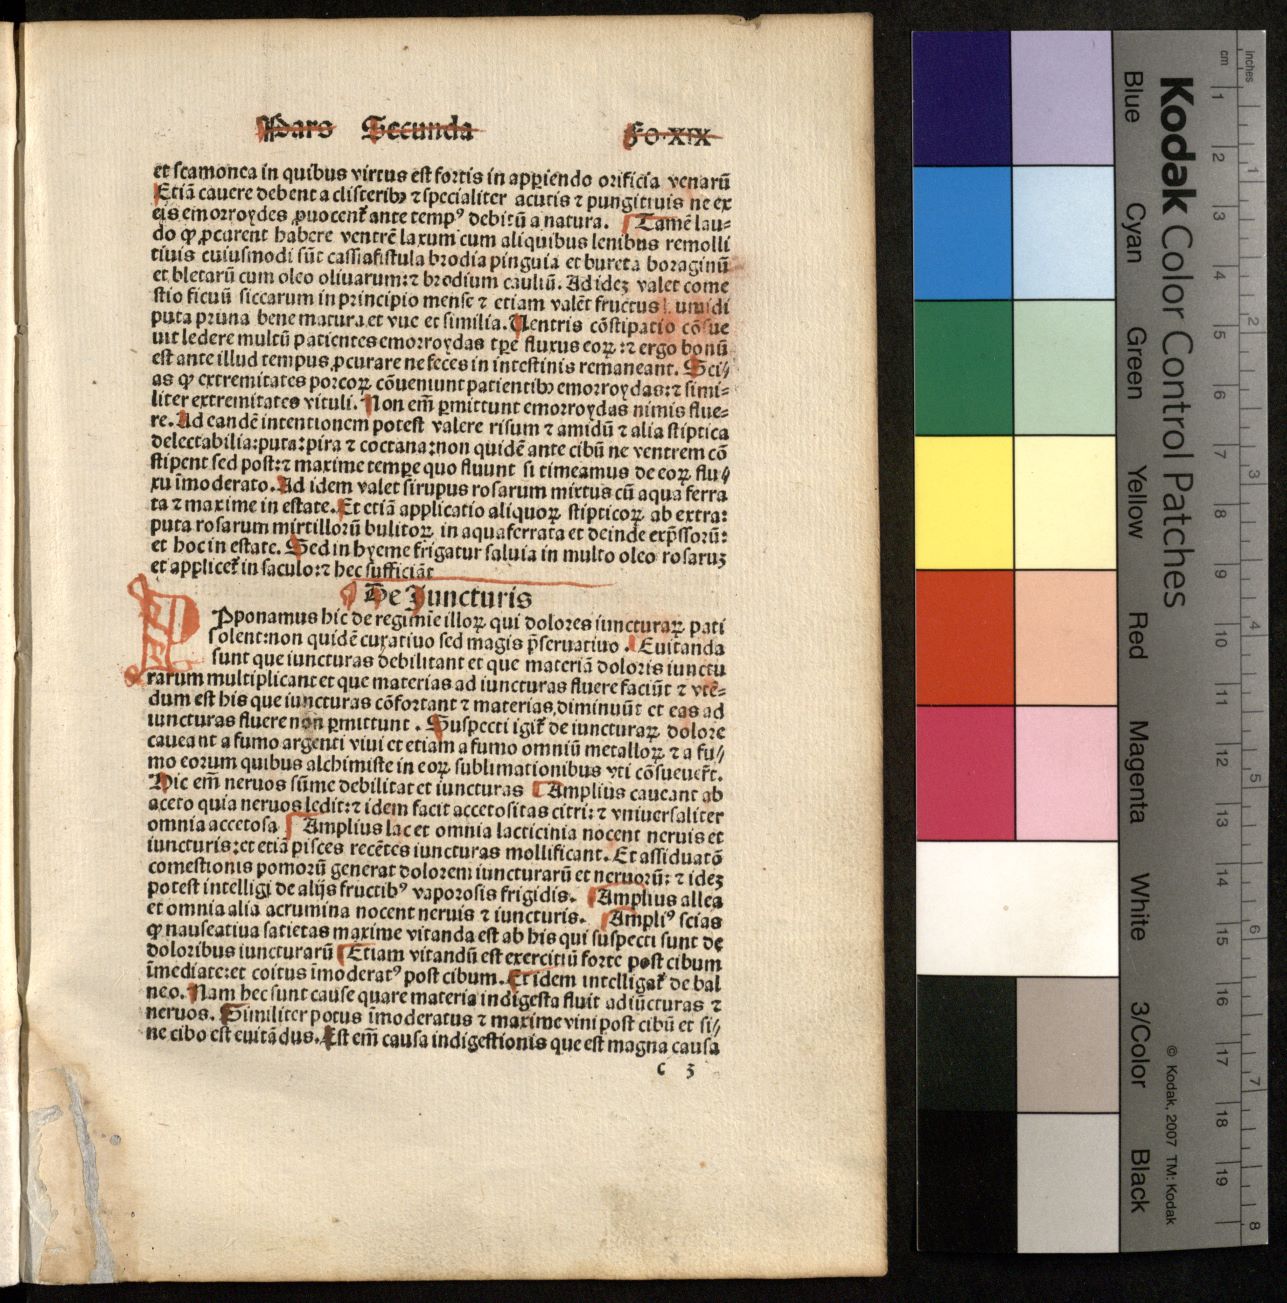 Pars Secunda Fo.XIX
et scamonea in quibus virtus est fortis in appiendo orificia venarū
Etiā cauere debent a clisteribꝫ ⁊ specialiter acutis ⁊ pungitiuis ne ex
eis emorroydes ꝓuocent᷑ ante tempꝰ debitū a natura. Tamē lau⸗
do ꝙ ꝓcurent habere ventrē laxum cum aliquibus lenibus remolli
tiuis cuiusmodi sūt cassiafistula brodia pinguia et bureta boraginū
et bletarū cum oleo oliuarum:⁊ brodium cauliū. Ad ideꝫ valet come
stio ficuū siccarum in principio mense ⁊ etiam valēt fructus humidi
puta pruna bene matura et vue et similia. Uentris cōstipatio cōsue
uit ledere multū patientes emorroydas tꝑe fluxus eoꝝ:⁊ ergo bonū
est ante illud tempus ꝓcurare ne feces in intestinis remaneant. Sci⸗
as ꝙ extremitates porcoꝝ cōueniunt patientibꝫ emorroydas:⁊ simi⸗
liter extremitates vituli. Non em̄ ꝑmittunt emorroydas nimis flue⸗
re. Ad eandē intentionem potest valere risum ⁊ amidū ⁊ alia stiptica
delectabilia:puta:pira ⁊ coctana:non quidē ante cibū ne ventrem cō
stipent sed post:⁊ maxime tempe quo fluunt si timeamus de eoꝝ flu⸗
xu īmoderato. Ad idem valet sirupus rosarum mixtus cū aqua ferra
ta ⁊ maxime in estate. Et etiā applicatio aliquoꝝ stipticoꝝ ab extra:
puta rosarum mirtillorū bulitoꝝ in aqua ferrata et deinde exp̄ssorū:
et hoc in estate. Sed in hyeme frigatur saluia in multo oleo rosaruꝫ
et applicet᷑ in saculo:⁊ hec sufficiāt
De Juncturis
Pponamus hic de regimīe illoꝝ qui dolores iuncturaꝝ pati
solent:non quidē curatiuo sed magis p̄seruatiuo. Euitanda
sunt que iuncturas debilitant et que materiā doloris iunctu
rarum multiplicant et que materias ad iuncturas fluere faciūt ⁊ vtē⸗
dum est his que iuncturas cōfortant ⁊ materias diminuūt et eas ad
iuncturas fluere non ꝑmittunt. Suspecti igit᷑ de iuncturaꝝ dolore
caueant a fumo argenti viui et etiam a fumo omniū metalloꝝ ⁊ a fu⸗
mo eorum quibus alchimiste in eoꝝ sublimationibus vti cōsueuer̄t.
Hic em̄ neruos sūme debilitat et iuncturas Amplius caueant ab
aceto quia neruos ledit:⁊ idem facit accetositas citri:⁊ vniuersaliter
omnia accetosa Amplius lac et omnia lacticinia nocent neruis et
iuncturis:et etiā pisces recētes iuncturas mollificant. Et assiduatō
comestionis pomorū generat dolorem iuncturarū et neruorū: ⁊ ideꝫ
potest intelligi de alijs fructibꝰ vaporosis frigidis. Amplius allea
et omnia alia acrumina nocent neruis ⁊ iuncturis. Ampliꝰ scias
ꝙ nauseatiua satietas maxime vitanda est ab his qui suspecti sunt de
doloribus iuncturarū Etiam vitandū est exercitiū forte post cibum
īmediate:et coitus īmoderatꝰ post cibum. Et idem intelligat᷑ de bal
neo. Nam hec sunt cause quare materia indigesta fluit ad iūcturas ⁊
neruos. Similiter potus īmoderatus ⁊ maxime vini post cibū et si⸗
ne cibo est euitādus. Est em̄ causa indigestionis que est magna causa
c 3
inches
cm
1 2 3 4 5 6 7 8 9 10 11 12 13 14 15 16 17 18 19
1 2 3 4 5 6 7 8
Kodak Color Control Patches
© Kodak, 2007 TM: Kodak
Blue
Cyan
Green
Yellow
Red
Magenta
White
3/Color
Black